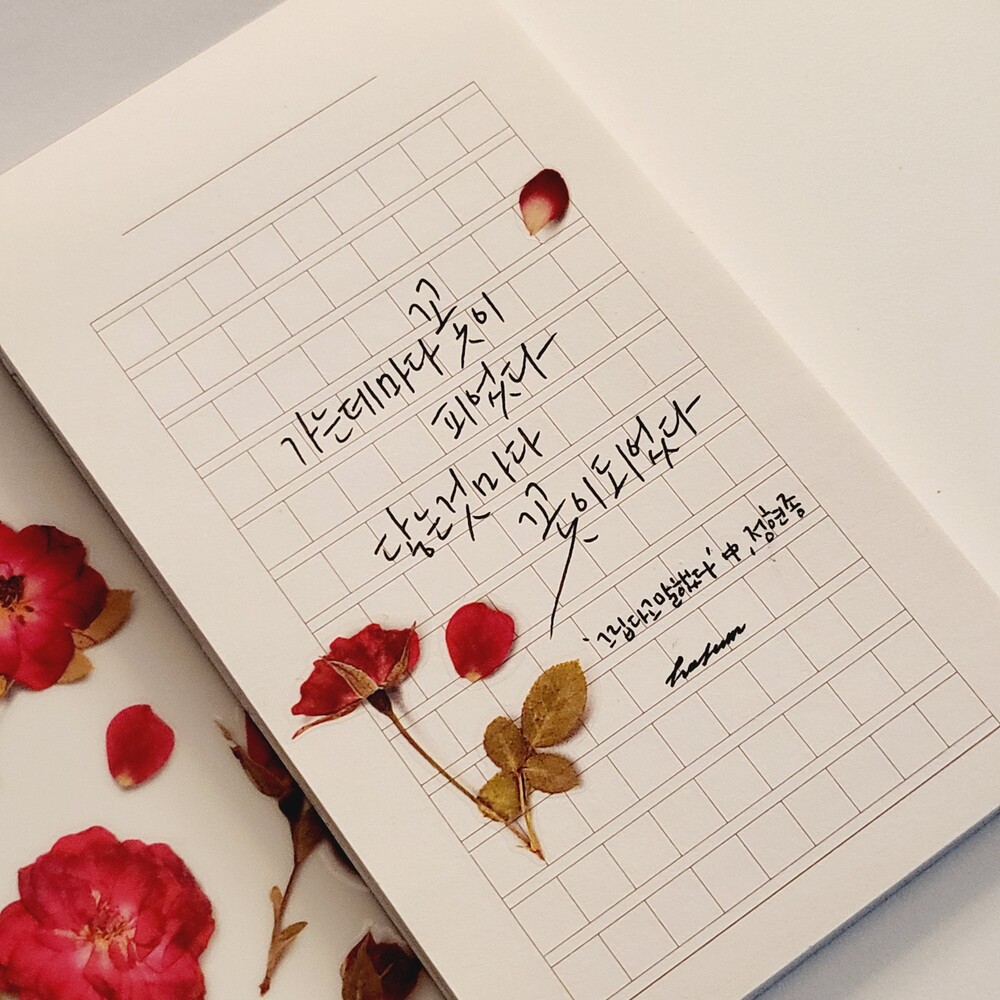 가는데마다 꽃이
피었다
닮는것마다
꽃이 피었다
'그립다고 말했다' 中, 정현종